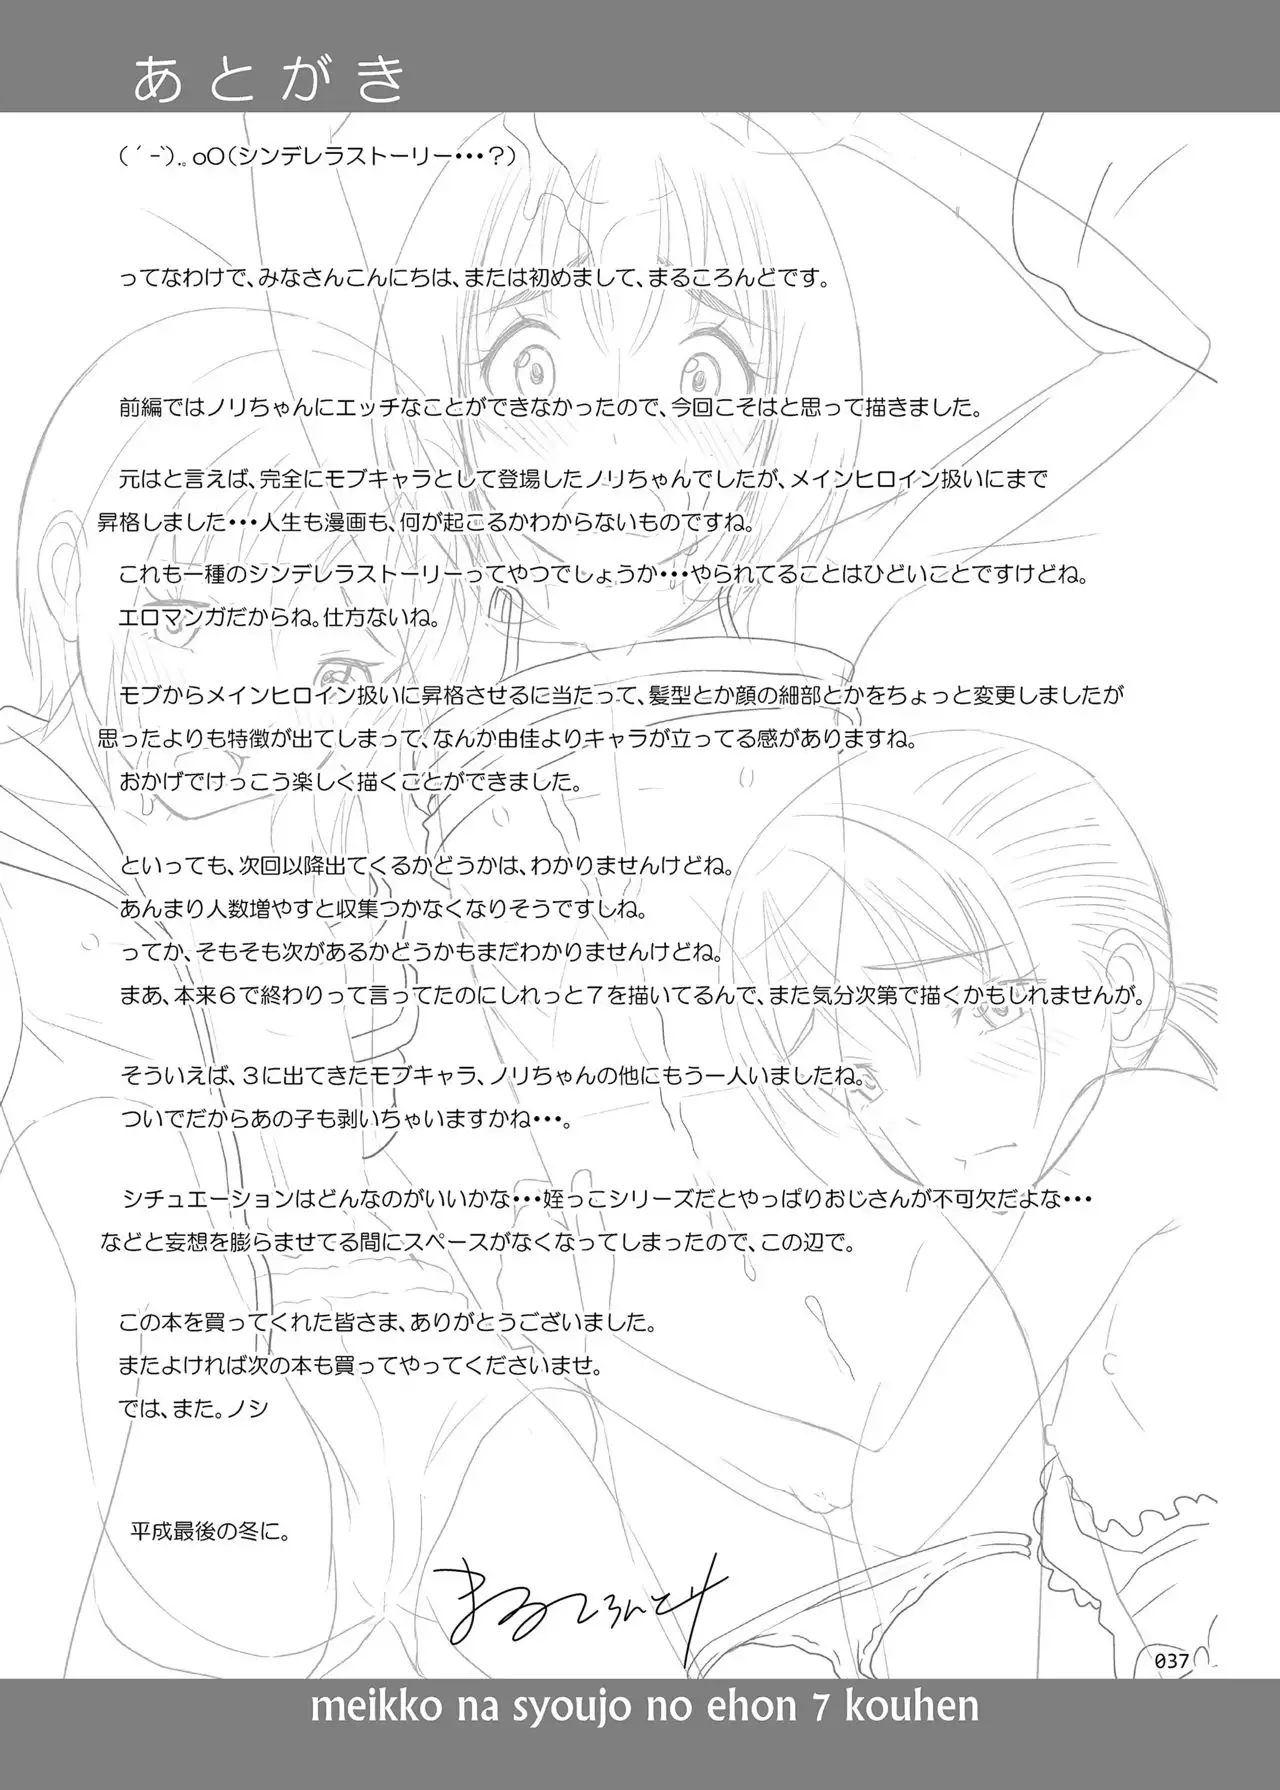 あとがき
( ´ -`).。oO(シンデレラストーリー･･･？)
ってなわけで、みなさんこんにちは、または初めまして、まるころんどです。
前編ではノリちゃんにエッチなことができなかったので、今回こそはと思って描きました。
元はと言えば、完全にモブキャラとして登場したノリちゃんでしたが、メインヒロイン扱いにまで
昇格しました･･･人生も漫画も、何が起こるかわからないものですね。
これも一種のシンデレラストーリーってやつでしょうか･･･やられてることはひどいことですけどね。
エロマンガだからね。仕方ないね。
モブからメインヒロイン扱いに昇格させるに当たって、髪型とか顔の細部とかをちょっと変更しましたが
思ったよりも特徴が出てしまって、なんか由佳よりキャラが立ってる感がありますね。
おかげでけっこう楽しく描くことができました。
といっても、次回以降出てくるかどうかは、わかりませんけどね。
あんまり人数増やすと収集つかなくなりそうですしね。
ってか、そもそも次があるかどうかもまだわかりませんけどね。
まあ、本来６で終わりって言ってたのにしれっと７を描いてるんで、また気分次第で描くかもしれませんが。
そういえば、３に出てきたモブキャラ、ノリちゃんの他にもう一人いましたね。
ついでだからあの子も剥いちゃいますかね･･･。
シチュエーションはどんなのがいいかな･･･姪っこシリーズだとやっぱりおじさんが不可欠だよな･･･
などと妄想を膨らませてる間にスペースがなくなってしまったので、この辺で。
この本を買ってくれた皆さま、ありがとうございました。
またよければ次の本も買ってやってくださいませ。
では、また。ノシ
平成最後の冬に。
まるころんど
037
meikko na syoujo no ehon 7 kouhen